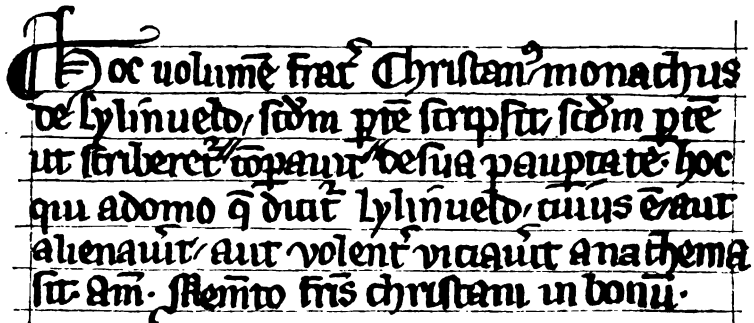 Hoc uolum̄e frat̃ Christanꝰ monachus
de Lylinueld / scd̄m ꝑtē scripsit / scd̄m ꝑtē
ut scriberet᷑ // cōꝑauit // de sua pauꝑtate. hoc
qui a domo q̄ dicit᷑ Lylinueld / cuius ē / aut
alienau̾it / aut volent̾ viciau̾it anathema
sit. am̄. Mem̄to fr̄is christani in bonū.